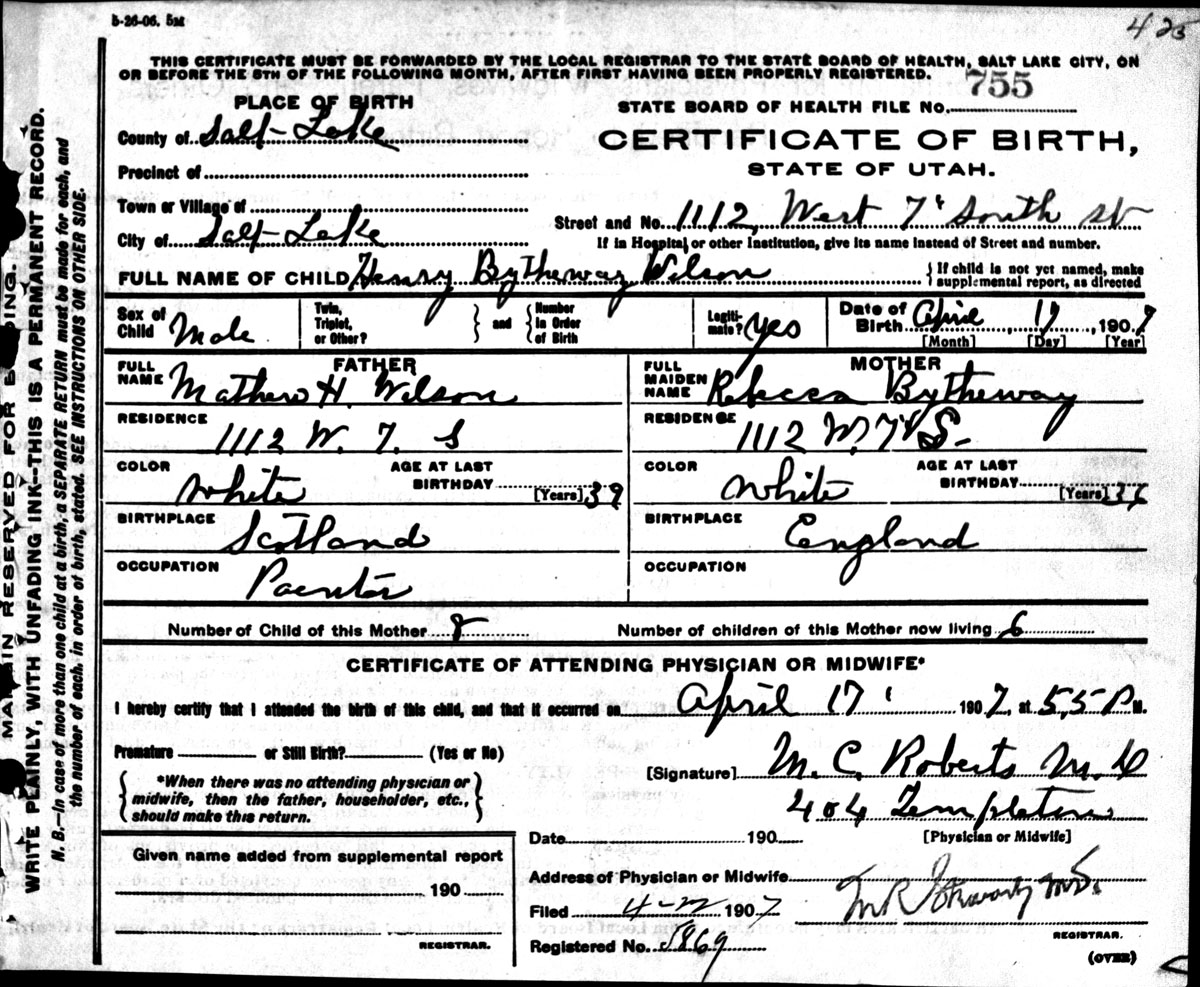 5-26-06. 5M
425
THIS CERTIFICATE MUST BE FORWARDED BY THE LOCAL REGISTRAR TO THE STATE BOARD OF HEALTH, SALT LAKE CITY, ON
OR BEFORE THE 5TH OF THE FOLLOWING MONTH, AFTER FIRST HAVING BEEN PROPERLY REGISTERED.
PLACE OF BIRTH
STATE BOARD OF HEALTH FILE NO. 755
County of Salt Lake
CERTIFICATE OF BIRTH,
STATE OF UTAH.
Precinct of
Town or Village of
Street and No. 1112, West 7' South St
City of Salt Lake
If in Hospital or other Institution, give its name instead of Street and number.
FULL NAME OF CHILD Henry Bytheway Wilson
{ If child is not yet named, make
supplemental report, as directed
Sex of Child Male
Twin, Triplet, or Other? } and { Number in Order of Birth
Legitimate? Yes
Date of Birth April, 17, 1907
[Month] [Day] [Year]
FATHER
FULL NAME Mathew H. Wilson
RESIDENCE
1112 W. 7. S
COLOR White
AGE AT LAST BIRTHDAY [Years] 39
BIRTHPLACE
Scotland
OCCUPATION
Painter
MOTHER
FULL MAIDEN NAME Rebecca Bytheway
RESIDENCE
1112 W. 7' S.
COLOR White
AGE AT LAST BIRTHDAY [Years] 36
BIRTHPLACE
England
OCCUPATION
Number of Child of this Mother 8
Number of children of this Mother now living 6
CERTIFICATE OF ATTENDING PHYSICIAN OR MIDWIFE*
I hereby certify that I attended the birth of this child, and that it occurred on April 17' 1907, at 5,5 P M.
Premature or Still Birth? (Yes or No)
{ *When there was no attending physician or
midwife, then the father, householder, etc.,
should make this return. }
[Signature] M. C. Roberts M.D
404 Templeton
Date 190
[Physician or Midwife]
Given name added from supplemental report
190
REGISTRAR.
Address of Physician or Midwife
Filed 4-22 1907
Registered No. 5869
REGISTRAR.
(OVER)
MARGIN RESERVED FOR BINDING.
WRITE PLAINLY, WITH UNFADING INK—THIS IS A PERMANENT RECORD.
N. B.—In case of more than one child at a birth, a SEPARATE RETURN must be made for each, and
the number of each, in order of birth, stated. SEE INSTRUCTIONS ON OTHER SIDE.